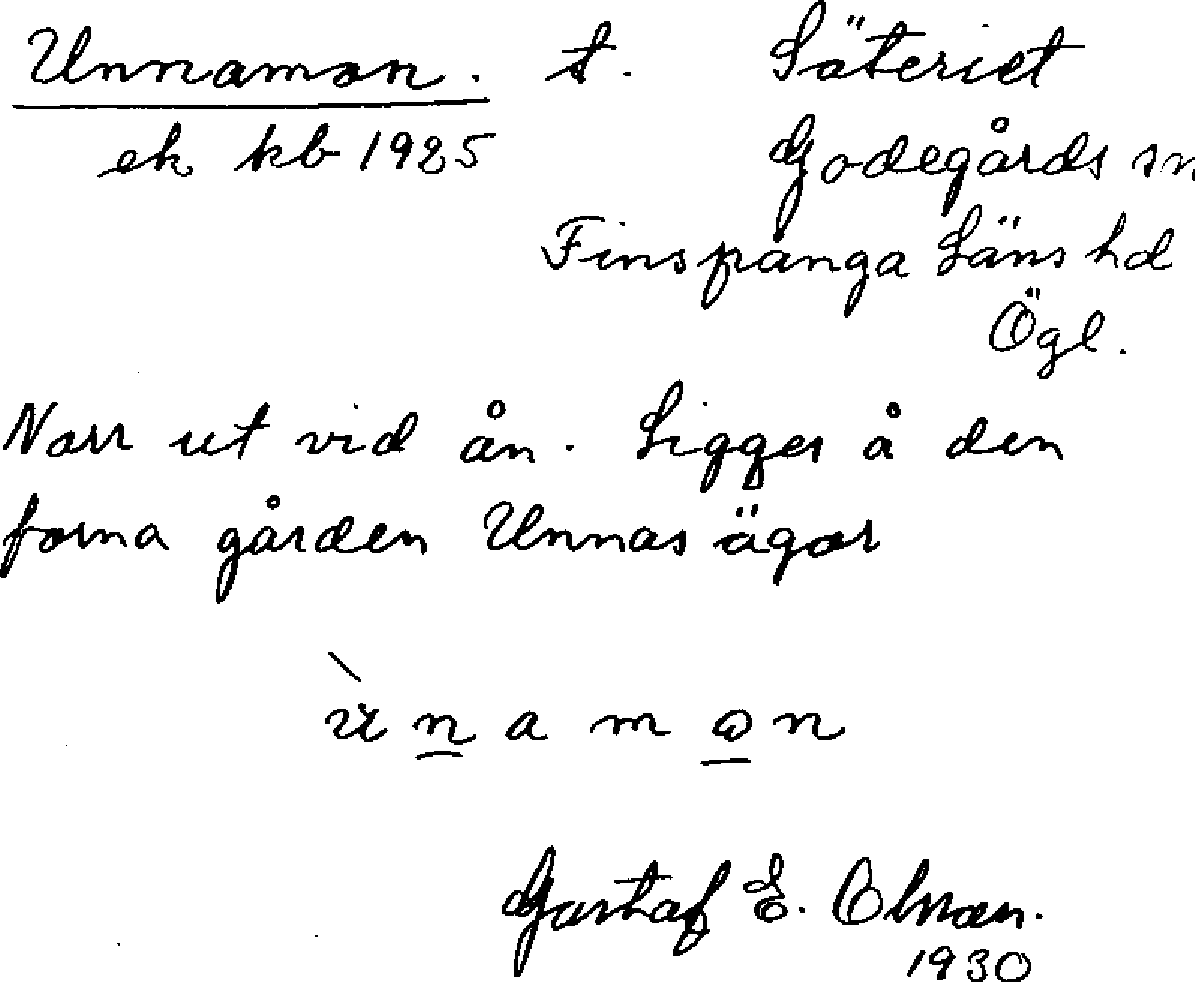 Unnamon. t. Säteriet
ek kb 1925 Godegårds sn
Finspånga Läns hd
Ögl.
Norr ut vid ån. Ligger å den
forna gården Unnas ägor
ù n a m o n
Gustaf E. Olsson.
1930